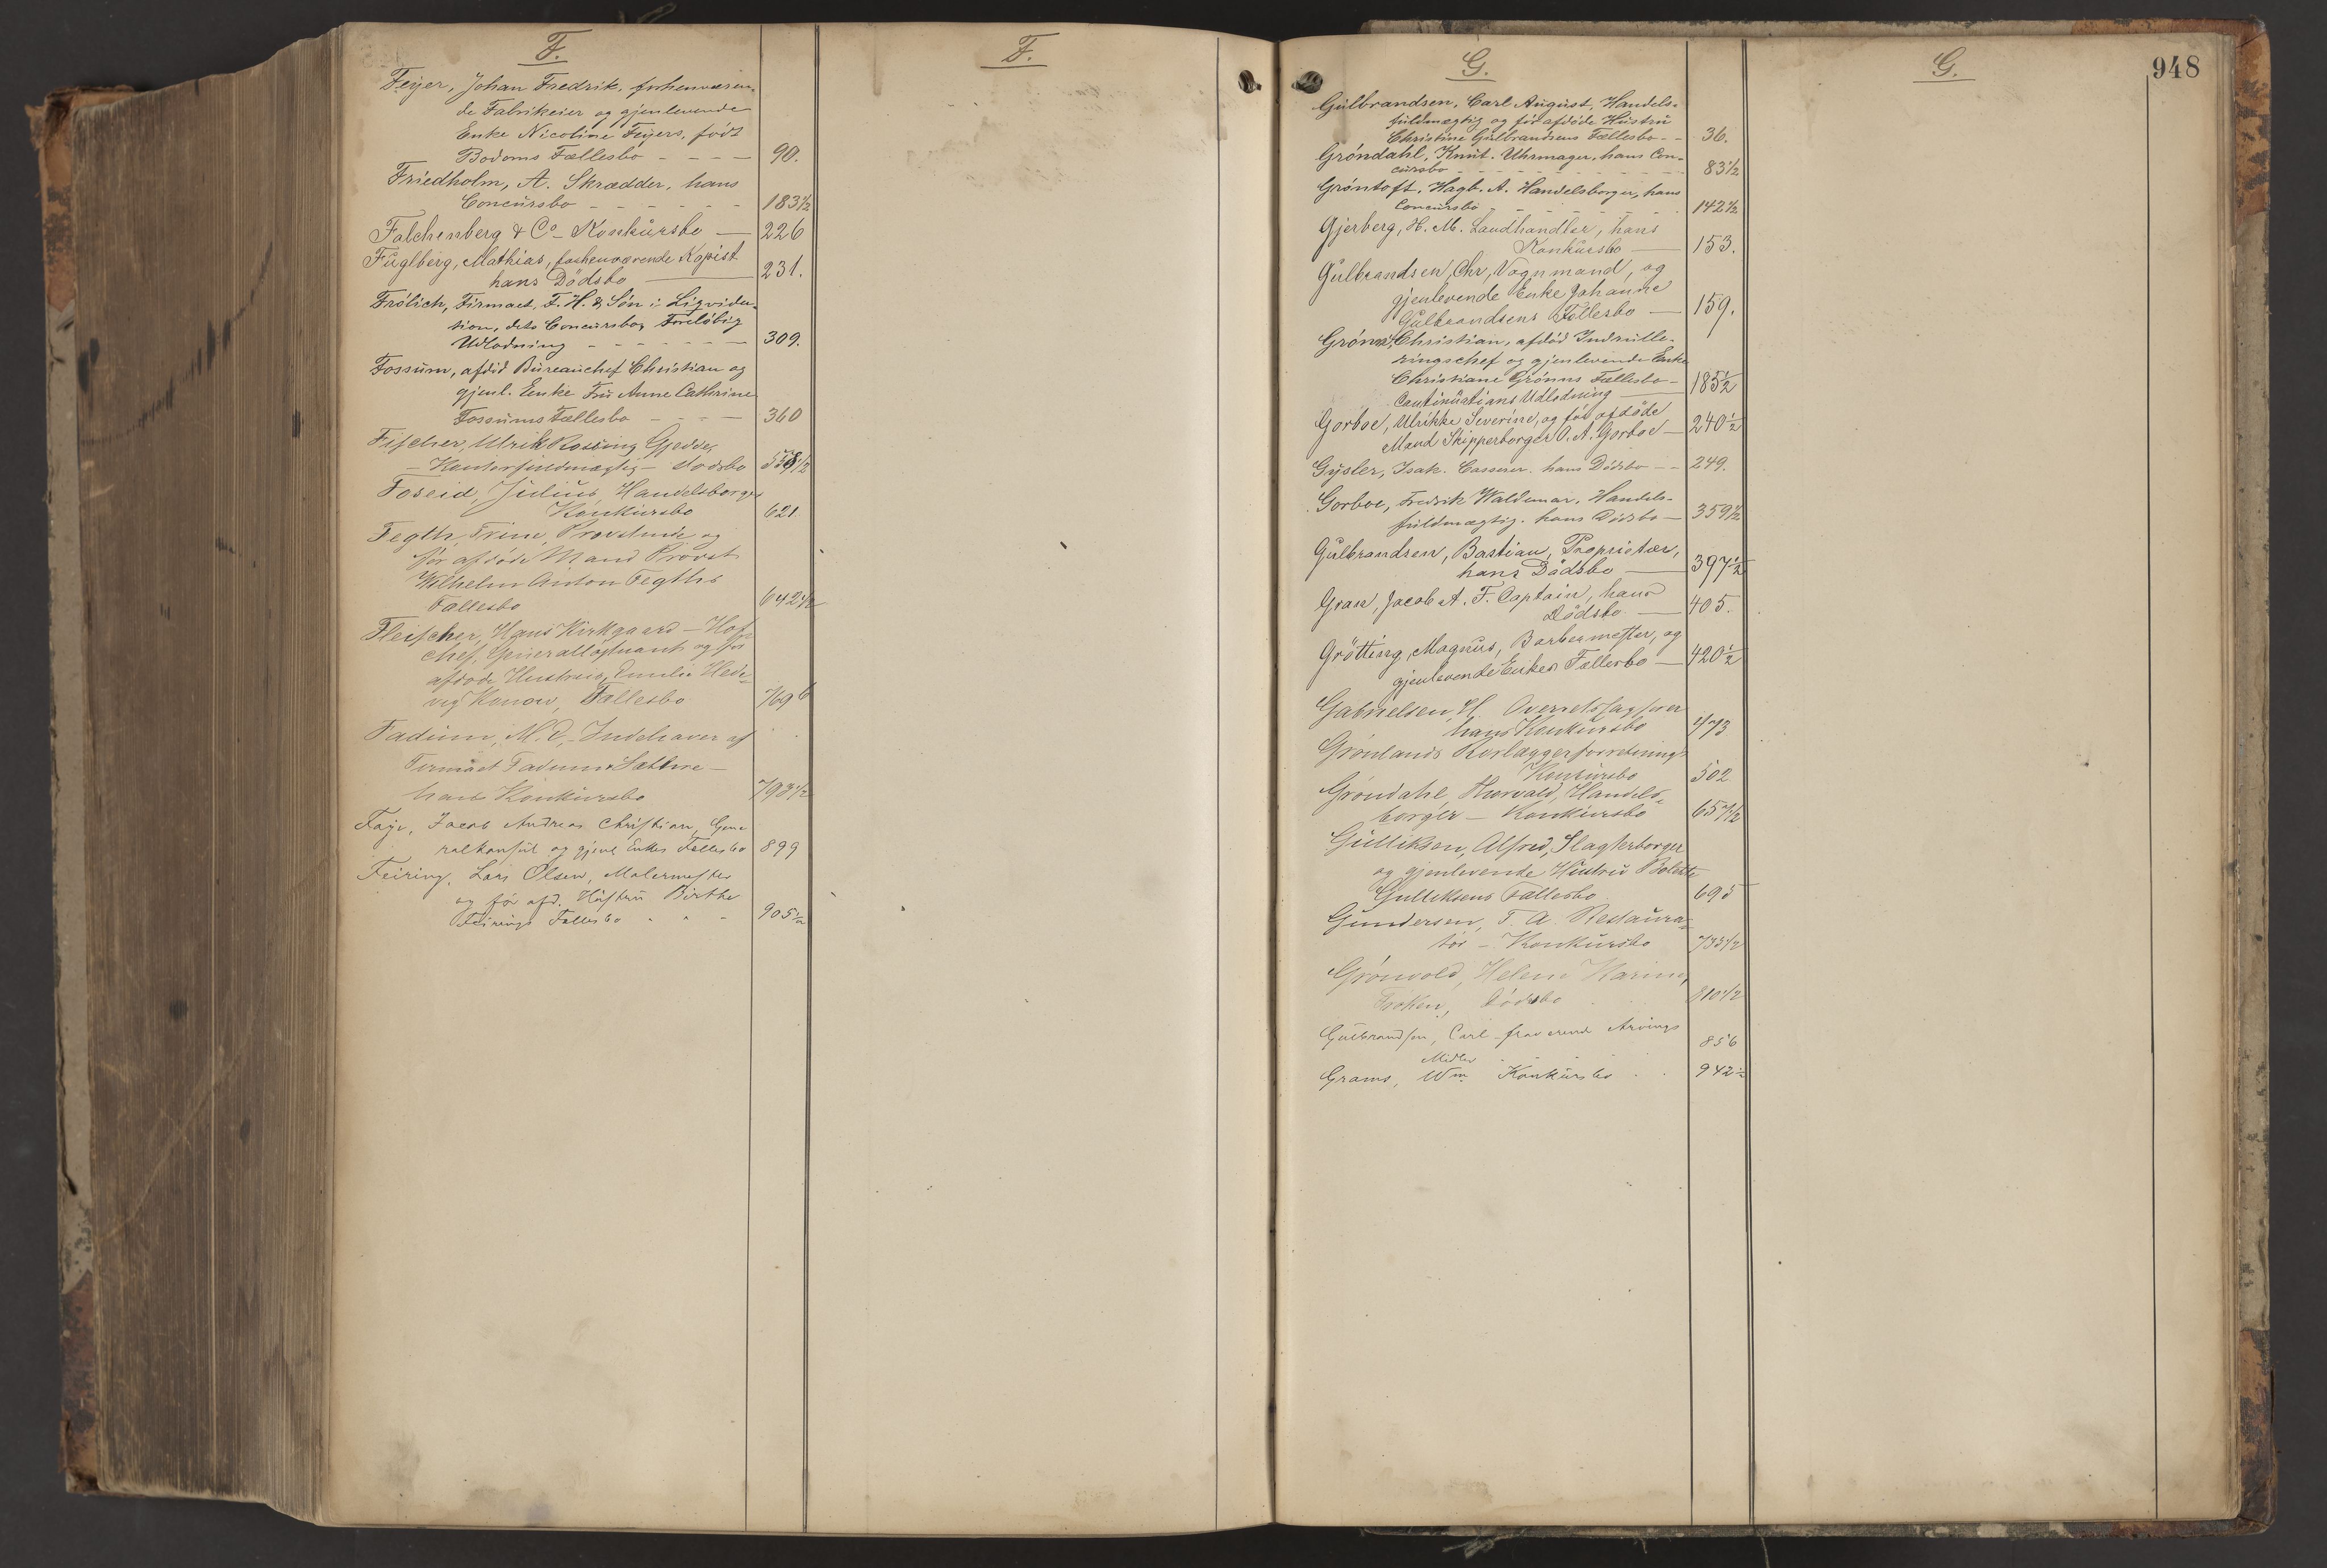 F.
Feyer, Johan Fredrik, forhenværen-
de Fabrikeier og gjenlevende
Enke Nicoline Feyers, født
Bodoms Fællesbo - - - - 90.
Friedholm, A. Skrædder, hans
Concursbo - - - - - - 183 1/2
Falchenberg & Co - Konkursbo — 226
Fuglberg, Mathias, forhenværende Kopist
hans Dødsbo — 231.
Frölich, Firmaet, F. H. & Sön i Ligvida-
tion, dets Concursbo, Foreløbig
Udlodning - - - - - - - 309.
Fossum, afdød Bureauchef Christian og
gjenl. Enke Fru Anne Cathrine
Fossums Fællesbo - - - - 360
Fischer, Ulrik Rosing Gjedde,
- Kontorfuldmægtig - dødsbo 558 1/2
Foseid, Julius, Handelsborger
Konkursbo 621.
Fegth, Trine, Provstinde og
før afdøde Mand Provst
Wilhelm Anton Fegths
Fællesbo 642 1/2
Fleischer, Hans Kirkgaard - Hof-
chef, Generalløjtnant og før
afdøde Hustrus, Emilie Hed-
vig Konow, Fællesbo 769
Fadum, M. O. - Indehaver af
Firmaet Fadum & Sæthre -
hans Konkursbo 793 1/2
Faye, Jacob Andreas Christian, Gene
ralkonsul og gjenl. Enkes Fællesbo 899
Feiring, Lars Olsen, Malermester
og før afd. Hustru Birthe
Feirings Fællesbo - - - 905 1/2
F.
G.
Gulbrandsen, Carl August, Handels-
fuldmægtig og før afdøde Hustru
Christine Gulbrandsens Fællesbo - - 36.
Gröndahl, Knut. Uhrmager, hans Con-
cursbo - - - - - - - - - 83 1/2
Gröntoft, Hagb. A. Handelsborger, hans
Concursbo - - - - - - - 142 1/2
Gjerberg, H. M. Landhandler, hans
Konkursbo — 153.
Gulbrandsen, Chr, Vognmand, og
gjenlevende Enke Johanne
Gulbrandsens Fællesbo — 159.
Grönn, Christian, afdød Indrulle-
ringschef og gjenlevende Enke
Christiane Grönns Fællesbo -
Continuations Udlodning — 185 1/2
Gorboe, Ulrikke Severine, og før afdøde
Mand Skipperborger O. A. Gorboe — 240 1/2
Gysler, Isak. Casserer. hans Dødsbo - - 249.
Gorboe, Fredrik Waldemar. Handels-
fuldmægtig. hans Dødsbo — 359 1/2
Gulbrandsen, Bastian, Proprietær,
hans Dødsbo — 397 1/2
Gran, Jacob A. F. Captain, hans
Dødsbo — 405.
Grötting, Magnus, Barbermester, og
gjenlevende Enkes Fællesbo — 420 1/2
Gabrielsen, H. Overretssagfører
hans Konkursbo 473
Grönlands Rørlæggerforretnings
Konkursbo 502
Gröndahl, Thorvald, Handels-
borger - Konkursbo 657 1/2
Gulliksen, Alfred, Slagterborger
og gjenlevende Hustru Bolette
Gulliksens Fællesbo 695
Gundersen, T. A. Restaura-
tör - Konkursbo 735 1/2
Grönvold, Helene Karine,
Frøken, Dødsbo 810 1/2
Gulbrandsen, Carl - fraværende Arvings
Midler 856
Grams, Wm. Konkursbo 942 1/2
G.
948